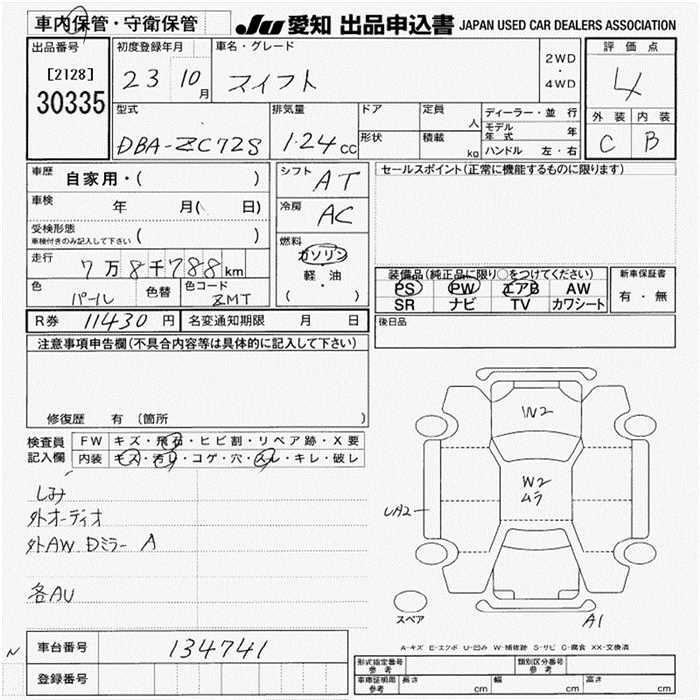 車内保管・守衛保管
JU 愛知 出品申込書 JAPAN USED CAR DEALERS ASSOCIATION
出品番号
[2128]
30335
初度登録年月
23 10月
車名・グレード
スイフト
2WD
・
4WD
評価点
4
外装 内装
C B
型式
DBA-ZC72S
排気量
1.24cc
ドア
形状
定員 人
積載 kg
ディーラー・並行
モデル年式 年
ハンドル 左・右
車歴 自家用・( )
車検 年 月( 日)
受検形態
車検付きのみ記入して下さい ( )
走行 7万8千788km
色 パール 色替 色コード ZMT
シフト AT
冷房 AC
燃料
ガソリン
・
軽・油
( )
セールスポイント(正常に機能するものに限ります)
装備品(純正品に限り○をつけてください)
PS PW エアB AW
SR ナビ TV カワシート
新車保証書
有・無
R券 11430円 名変通知期限 月 日
後日品
注意事項申告欄(不具合内容等は具体的に記入して下さい)
修復歴 有 (箇所 )
検査員記入欄
FW キズ・飛石・ヒビ割・リペア跡・X要
内装 キズ・汚れ・コゲ・穴・スレ・キレ・破レ
しみ
外オーディオ
外AW Dミラー A
各AU
W2
W2
ムラ
UA2
A1
スペア
A-キズ E-エクボ U-凹み W-補修跡 S-サビ C-腐食 XX-交換済
N
車台番号 134741
登録番号
形式指定番号 参考
類別区分番号 参考
車庫証明用 参考 長さ cm 幅 cm 高さ cm